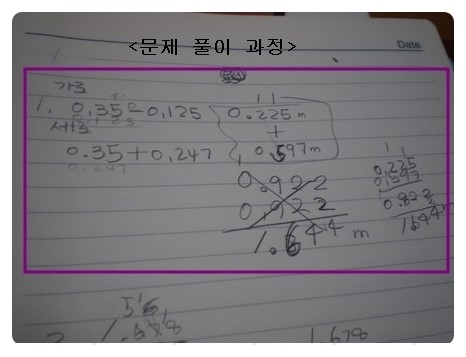 <문제 풀이 과정>
Date
가로
1. 0.350-0.125
0.225m
세로
+
0.35+0.247
0.597m
0.247
0.225
0.597
0.922
0.822
0.922
1.644
1.644 m
1.678